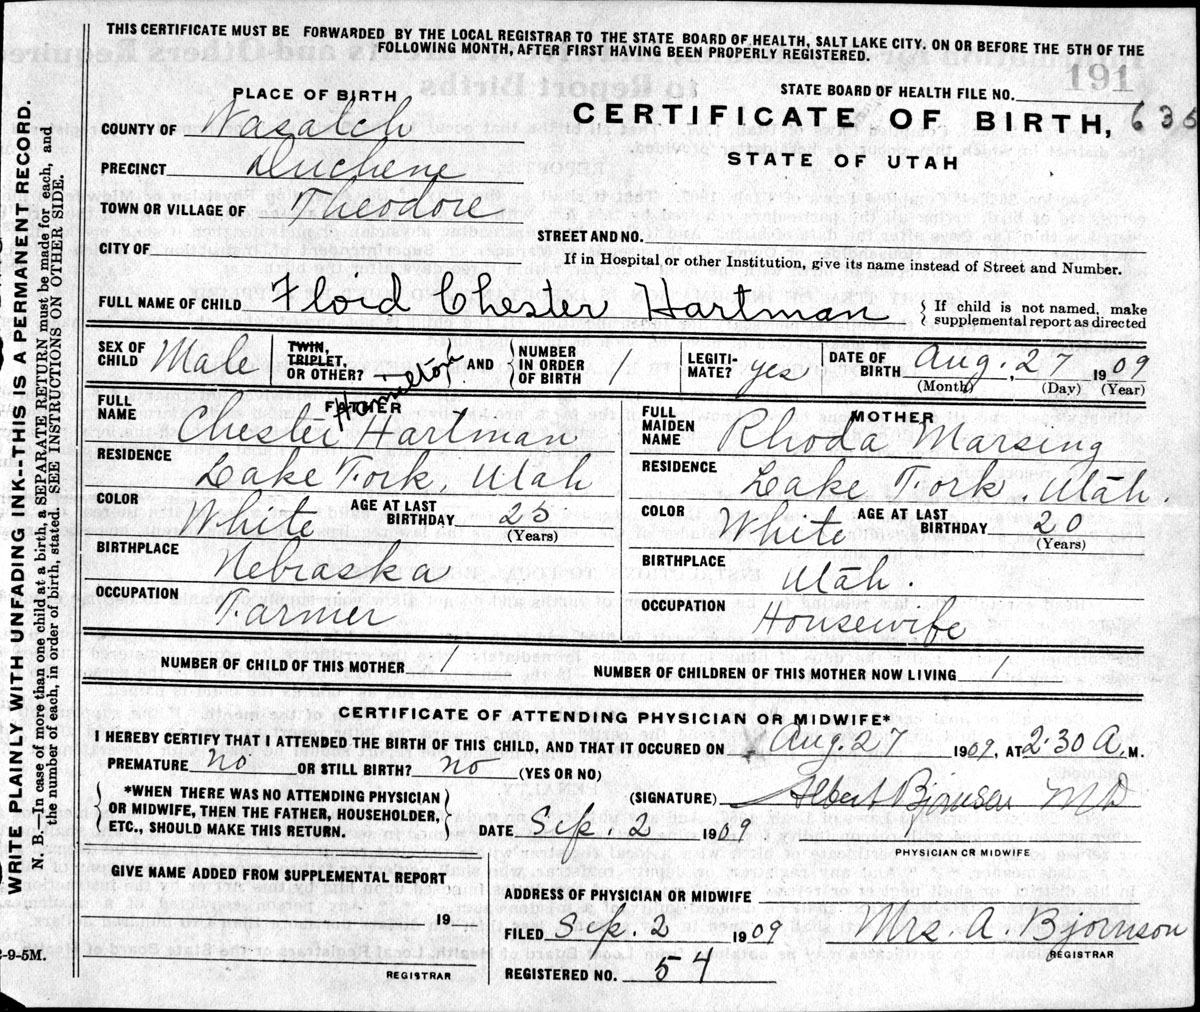 THIS CERTIFICATE MUST BE FORWARDED BY THE LOCAL REGISTRAR TO THE STATE BOARD OF HEALTH, SALT LAKE CITY. ON OR BEFORE THE 5TH OF THE
FOLLOWING MONTH, AFTER FIRST HAVING BEEN PROPERLY REGISTERED.
191
STATE BOARD OF HEALTH FILE NO.
PLACE OF BIRTH
CERTIFICATE OF BIRTH, 635
COUNTY OF Wasatch
STATE OF UTAH
PRECINCT Duchene
TOWN OR VILLAGE OF Theodore
STREET AND NO.
CITY OF
If in Hospital or other Institution, give its name instead of Street and Number.
FULL NAME OF CHILD Floid Chester Hartman
If child is not named, make
supplemental report as directed
SEX OF CHILD Male
TWIN, TRIPLET, OR OTHER?
AND
NUMBER IN ORDER OF BIRTH 1
LEGITIMATE? yes
DATE OF BIRTH Aug. 27 1909
(Month) (Day) (Year)
FATHER
Hamilton
FULL NAME Chester Hartman
RESIDENCE Lake Fork, Utah
COLOR White
AGE AT LAST BIRTHDAY 25
(Years)
BIRTHPLACE Nebraska
OCCUPATION Farmer
MOTHER
FULL MAIDEN NAME Rhoda Marsing
RESIDENCE Lake Fork, Utah
COLOR White
AGE AT LAST BIRTHDAY 20
(Years)
BIRTHPLACE Utah.
OCCUPATION Housewife
NUMBER OF CHILD OF THIS MOTHER 1
NUMBER OF CHILDREN OF THIS MOTHER NOW LIVING 1
CERTIFICATE OF ATTENDING PHYSICIAN OR MIDWIFE*
I HEREBY CERTIFY THAT I ATTENDED THE BIRTH OF THIS CHILD, AND THAT IT OCCURED ON Aug. 27 1909, AT 2:30 A.M.
PREMATURE no OR STILL BIRTH? no (YES OR NO)
*WHEN THERE WAS NO ATTENDING PHYSICIAN
OR MIDWIFE, THEN THE FATHER, HOUSEHOLDER,
ETC., SHOULD MAKE THIS RETURN.
(SIGNATURE) Albert Bjornson MD
DATE Sep. 2 1909
PHYSICIAN OR MIDWIFE
GIVE NAME ADDED FROM SUPPLEMENTAL REPORT
19
REGISTRAR
ADDRESS OF PHYSICIAN OR MIDWIFE
FILED Sep. 2 1909 Mrs. A Bjornson
REGISTRAR
REGISTERED NO. 54
WRITE PLAINLY WITH UNFADING INK--THIS IS A PERMANENT RECORD.
N. B.—In case of more than one child at a birth, a SEPARATE RETURN must be made for each, and
the number of each, in order of birth, stated. SEE INSTRUCTIONS ON OTHER SIDE.
-9-5M.